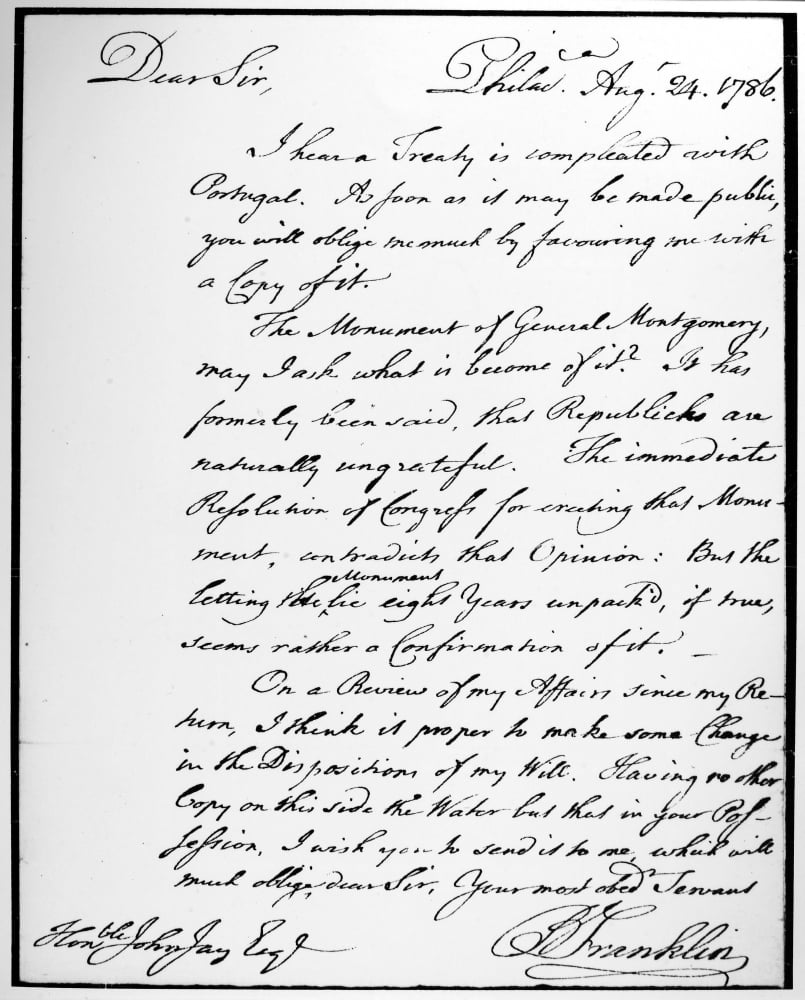 Dear Sir,
Philada. Augt. 24. 1786.
I hear a Treaty is compleated with
Portugal. As soon as it may be made public,
you will oblige me much by favouring me with
a Copy of it.
The Monument of General Montgomery,
may I ask what is become of it? It has
formerly been said, that Republicks are
naturally ungrateful. The immediate
Resolution of Congress for erecting that Monu-
ment, contradicts that Opinion: But the
Monument
letting the lie eight Years unpack'd, if true,
seems rather a Confirmation of it. —
On a Review of my Affairs since my Re-
turn, I think it proper to make some Change
in the Dispositions of my Will. Having no other
Copy on this side the Water but that in your Pos-
session, I wish you to send it to me, which will
much oblige, dear Sir, Your most obedt Servant
B Franklin
Honble John Jay Esqr